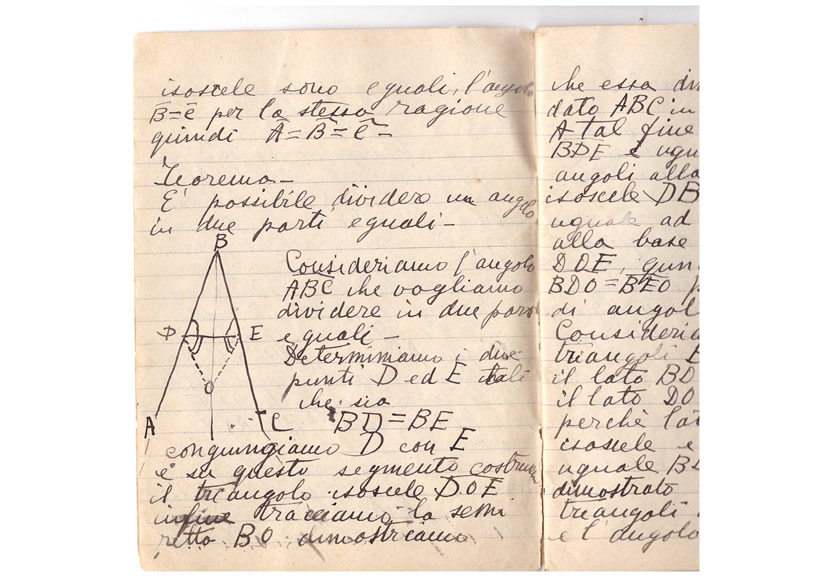 isoscele sono eguali, l'angolo
B̂=ĉ per la stessa ragione
quindi Â=B̂=Ĉ-
Teorema-
E' possibile dividere un angolo
in due parti eguali-
B
Consideriamo l'angolo
ABC che vogliamo
dividere in due parti
D E eguali-
Determiniamo i due
punti D ed E tali
O
che sia
A C BD=BE
congiungiamo D con E
e su questo segmento costruia
il triangolo isoscele DOE
infine tracciamo la semi
retto BO dimostriamo
che essa div
dato ABC in
A tal fine
BDE è ugu
angoli alla
isoscele DB
uguale ad
alla base
DOE, quin
BDO=BEO p
di angol
Consideria
triangoli B
il lato BD
il lato DO
perchè lat
isoscele e
uguale BD
dimostrato
triangoli
e l'angolo